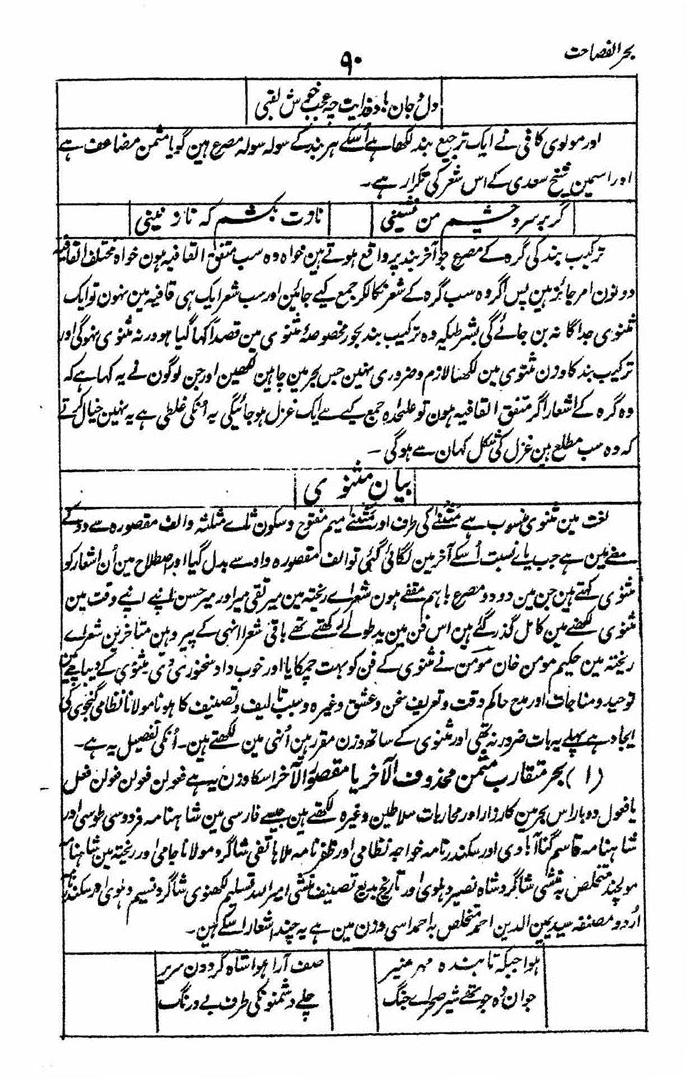 بحر الفصاحت
۹۰
دل و جان باد فدایت چه عجب خوش لقبی
اور مولوی کافی نے ایک ترجیع بند لکھا ہے اُسکے ہر بند کے سولہ سولہ مصرع ہین گویا مثمن مضاعف ہے
اور اسمین شیخ سعدی کے اس شعر کی تکرار ہے۔
گر بر سر و چشم من نشینی
نازت بکشم که نازنینی
ترکیب بند کی گرہ کے مصرع جو آخر بند پر واقع ہوتے ہین خواہ وہ سب متفق القافیہ ہون خواہ مختلف القافیہ
دونون امر جائز ہین پس اگر وہ سب گرہ کے شعر نکالکر جمع کیے جائین اور سب شعر ایک ہی قافیہ مین نہون تو ایک
مثنوی جداگانہ بن جائے گی بشرطیکہ وہ ترکیب بند بحور مخصوصۂ مثنوی مین قصداً کہا گیا ہو ورنہ مثنوی نہوگی اور
ترکیب بند کا وزن مثنوی مین لکھنا لازم و ضروری نہین جس بحر مین چاہین لکھین اور جن لوگون نے یہ کہا ہے کہ
وہ گرہ کے اشعار اگر متفق القافیہ ہون تو علیحدہ جمع کیے سے ایک غزل ہو جائیگی یہ انکی غلطی ہے یہ نہین خیال کرتے
کہ وہ سب مطلع ہین غزل کی شکل کہان سے ہوگی۔
بیان مثنوی
لغت مین مثنوی منسوب ہے مثنےٰ کی طرف اور مثنےٰ میم مفتوح و سکون ثاے مثلثہ و الف مقصورہ سے دو کے
معنے مین ہے جب یاے نسبت اُسکے آخر مین لگائی گئی تو الف مقصورہ واو سے بدل گیا اور اصطلاح مین اُن اشعار کو
مثنوی کہتے ہین جن مین دو دو مصرع باہم مقفے ہون شعراے ریختہ مین میر تقی میر اور میر حسن اپنے اپنے وقت مین
مثنوی لکھنے مین کامل گذر گئے ہین اس فن مین ید طولے رکھتے تھے باقی شعرا انہی کے پیرو ہین متاخرین شعراے
ریختہ مین حکیم مومن خان مومن نے مثنوی کے فن کو بہت چمکایا اور خوب داد سخنوری دی مثنوی کے دیباچے مین
توحید و مناجات اور مدح حاکم وقت و تعریف سخن و عشق وغیرہ و سبب تالیف و تصنیف کا ہونا مولانا نظامی گنجوی کی
ایجاد ہے پہلے یہ بات ضرور نہ تھی اور مثنوی کے سات وزن مقرر ہین اُنہی مین لکھتے ہین۔ اُنکی تفصیل یہ ہے۔
(۱) بحر متقارب مثمن محذوف الآخر یا مقصور الآخر اسکا وزن یہ ہے فعولن فعولن فعولن فعل
یا فعول دو بار اس بحر مین کارزار اور محاربات سلاطین وغیرہ لکھتے ہین جیسے فارسی مین شاہنامہ فردوسی طوسی اور
شاہنامہ قاسم گناآبادی اور سکندر نامہ خواجہ نظامی اور ظفر نامہ ملا ہاتفی شاگرد مولانا جامی اور ریختہ مین شاہنامہ
مولچند متخلص بہ منشی شاگرد شاہ نصیر دہلوی اور تاریخ بدیع تصنیف منشی امیر اللہ تسلیم لکھنوی شاگرد نسیم دہلوی اور سکندر نامہ
اُردو مصنفہ سید معین الدین احمد متخلص بہ احمد اسی وزن مین ہے یہ چند اشعار اسکے ہین۔
ہوا جبکہ تابندہ مہر منیر
صف آرا ہوا شاہ گردون سریر
جوان وہ جو تھے شیر صحراے جنگ
چلے دشمنونکی طرف بے درنگ